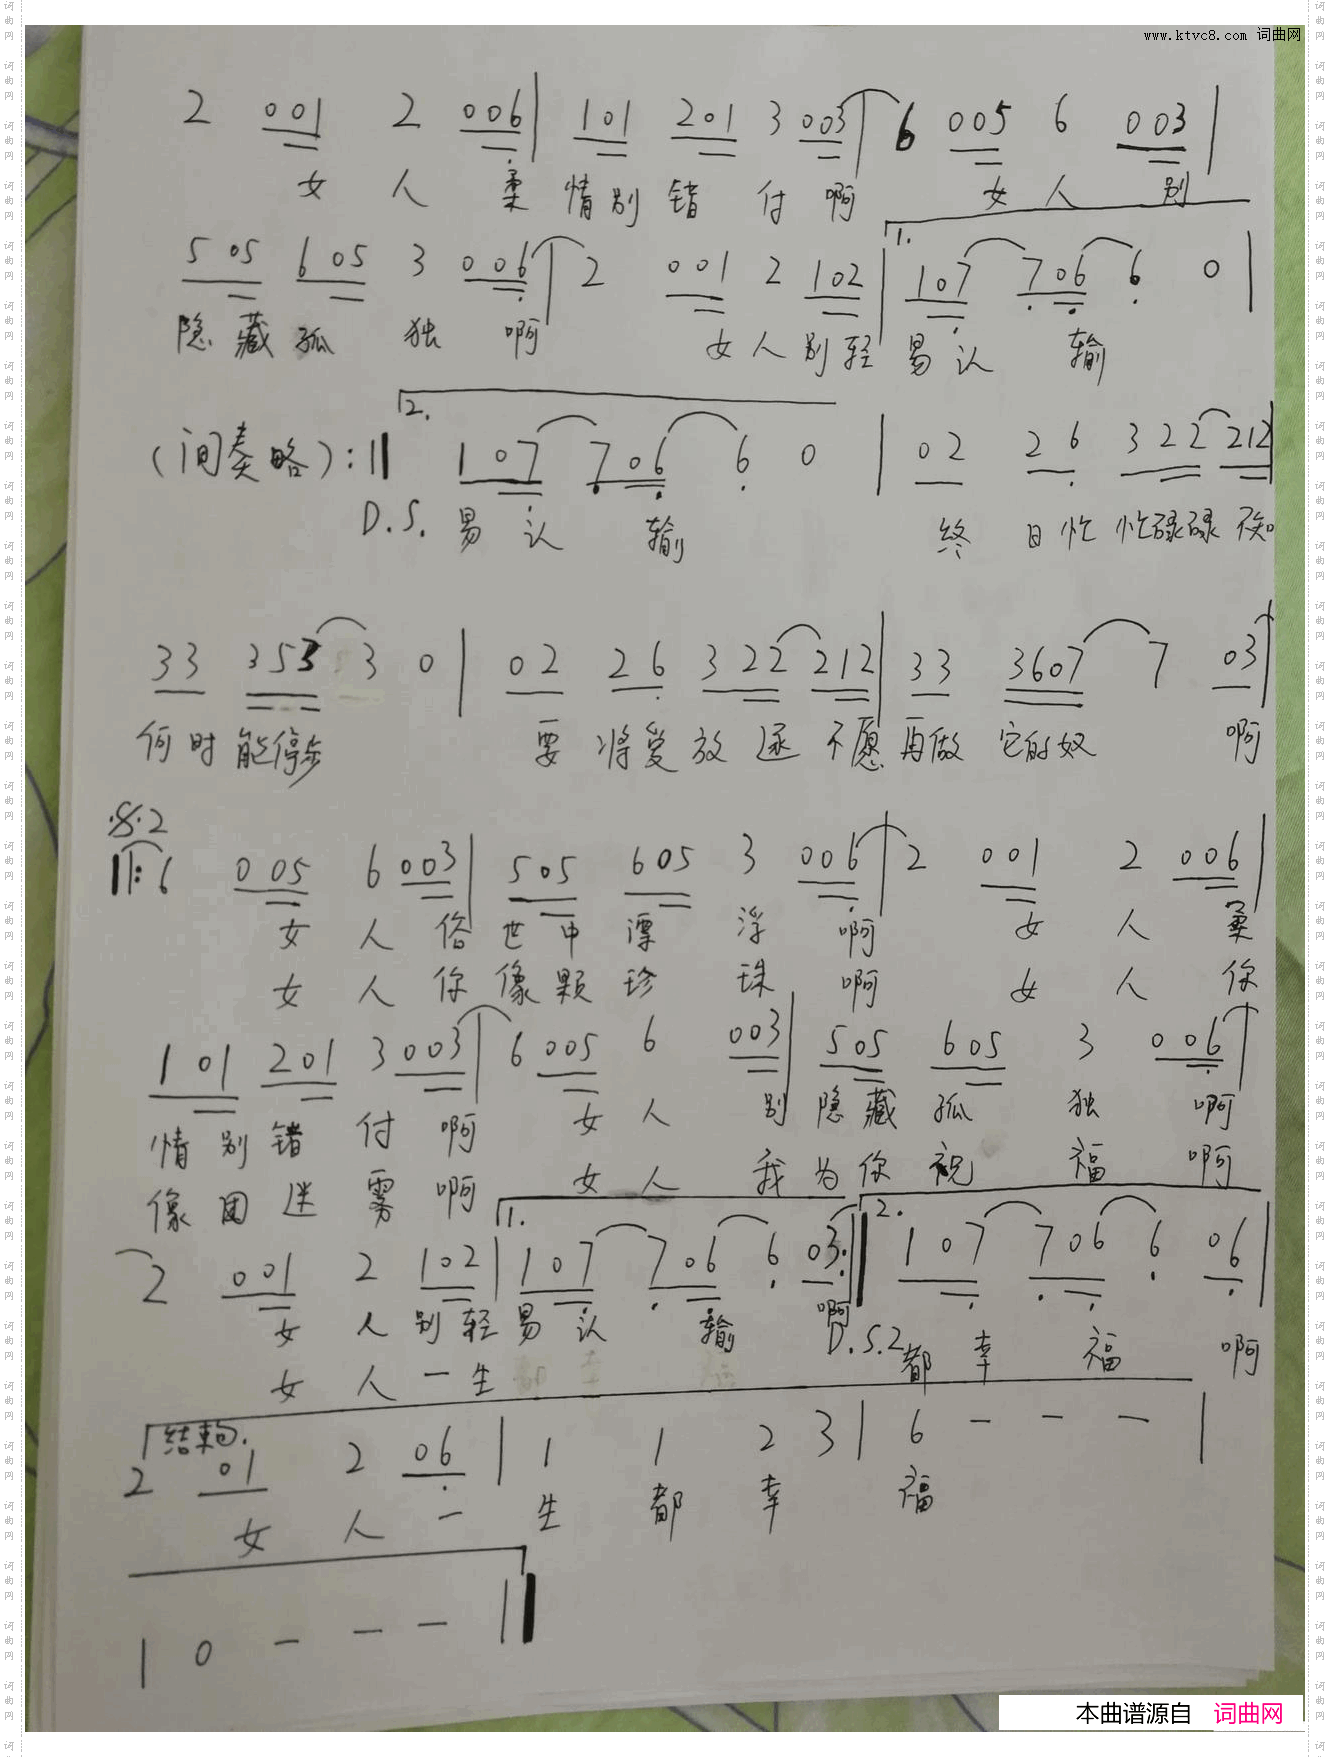 www.ktvc8.com 词曲网
2 001 2 006 | 101 201 3 003 | 6 005 6 003 |
女 人 柔 情 别 错 付 啊 女 人 别
1.
505 605 3 006 | 2 001 2 102 | 107 706 6 0 |
隐 藏 孤 独 啊 女 人 别 轻 易 认 输
2.
(间奏略) :|| 107 706 6 0 | 02 26 322 212 |
D.S. 易 认 输 终 日 忙 忙碌碌 不知
33 353 3 0 | 02 26 322 212 | 33 3607 7 03 |
何 时 能停步 要 将爱 放 逐 不愿 再做 它的奴 啊
𝄋2
||: 6 005 6 003 | 505 605 3 006 | 2 001 2 006 |
女 人 俗 世 中 漂 浮 啊 女 人 柔
女 人 你 像 颗 珍 珠 啊 女 人 你
101 201 3 003 | 6 005 6 003 | 505 605 3 006 |
情 别 错 付 啊 女 人 别 隐 藏 孤 独 啊
像 团 迷 雾 啊 女 人 我 为 你 祝 福 啊
1. 2.
2 001 2 102 | 107 706 6 03 :|| 107 706 6 06 |
女 人 别 轻 易 认 输 啊 D.S.2 都 幸 福 啊
女 人 一 生
结束句.
2 01 2 06 | 1 1 2 3 | 6 - - - |
女 人 一 生 都 幸 福
| 0 - - - ||
本曲谱源自 词曲网